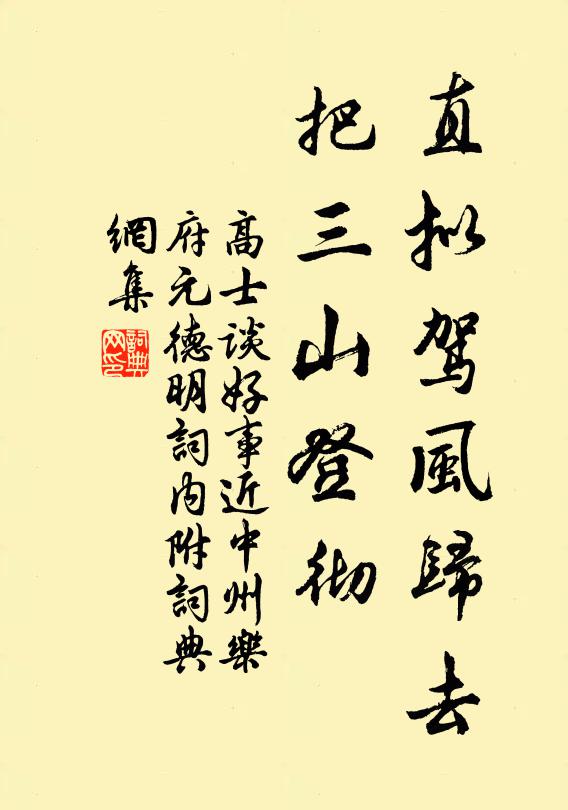 直拟駕風歸去
把三山登彻
高士谈好事近中州樂
府元德明詞内附詞典
網集
詞典
网印